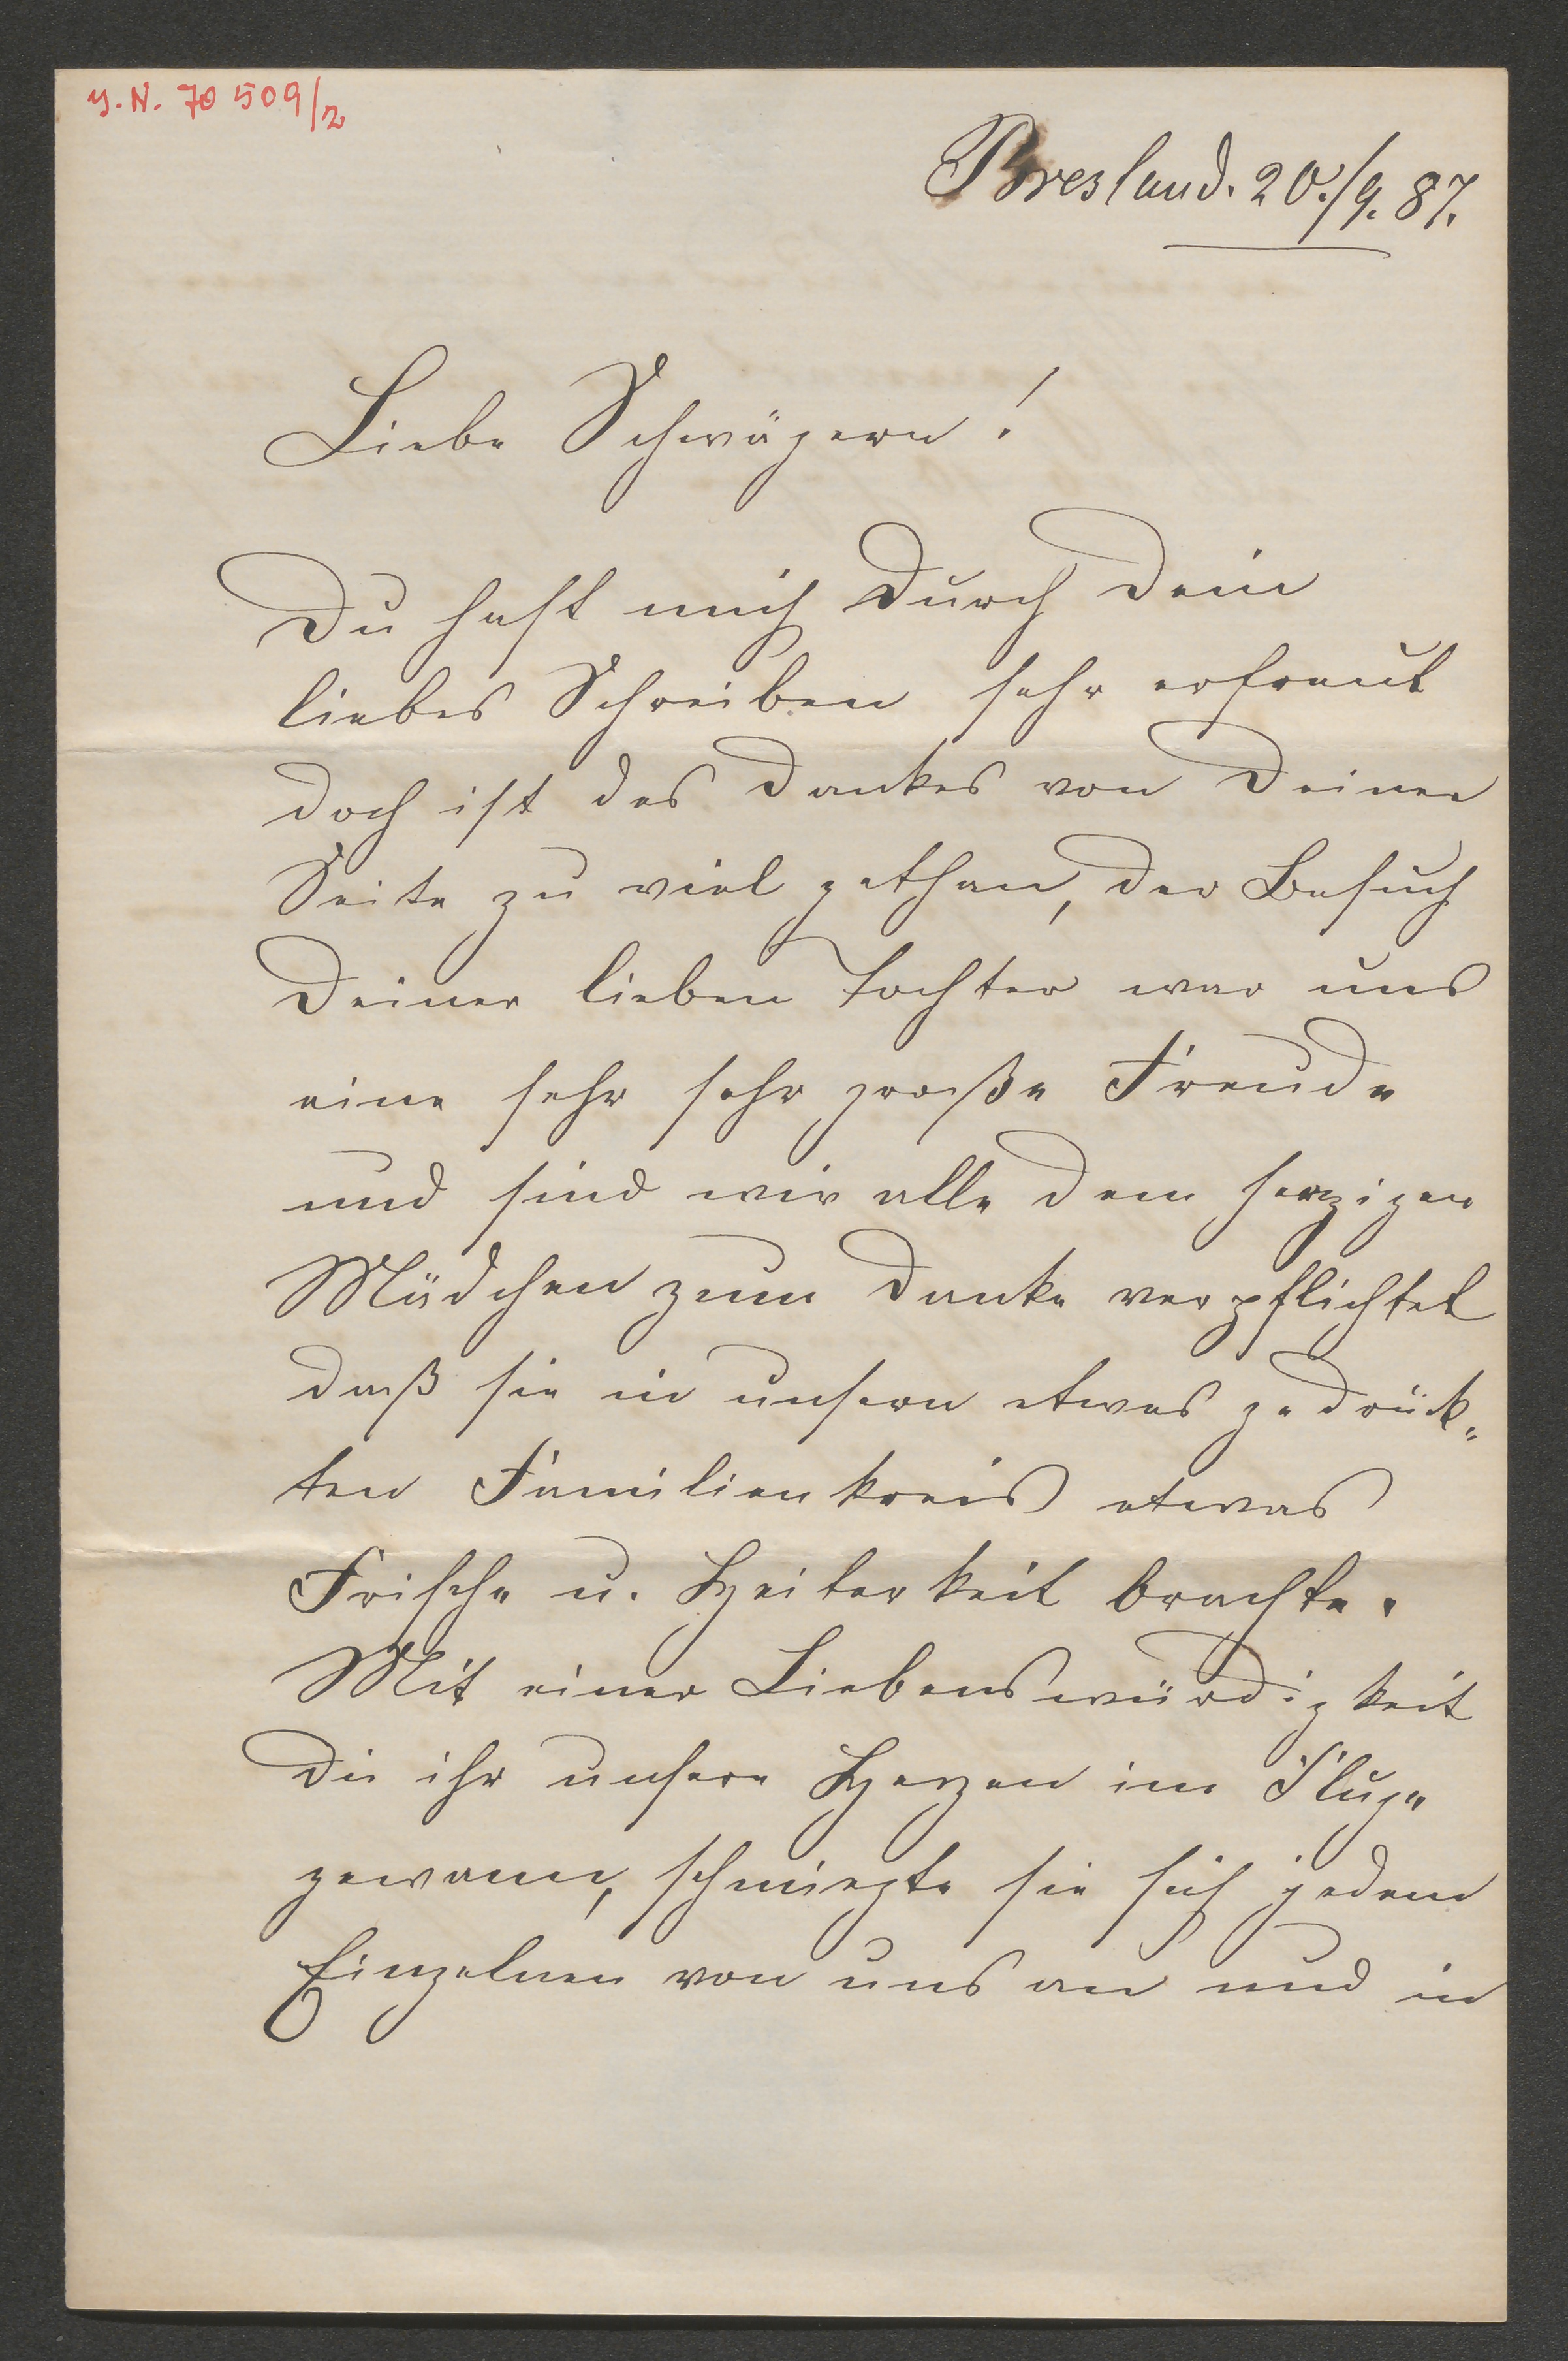 J.N. 70 509/2
Bresland. 20./9. 87.
Liebe Schwägern!
Du hast mich durch Dein
liebes Schreiben sehr erfreut
doch ist des Dankes von Deiner
Seite zu viel gethan, der Besuch
Deiner lieben Tochter war uns
eine sehr sehr große Freude
und sind wir alle dem herzigen
Mädchen zum Danke verpflichtet
daß sie in unsern etwas gedrück-
ten Familienkreis etwas
Frische u. Heiterkeit brachte.
Mit einer Liebenswürdigkeit
die ihr unsere Herzen im Fluge
gewann, schmiegte sie sich jedem
Einzelnen von uns an und in